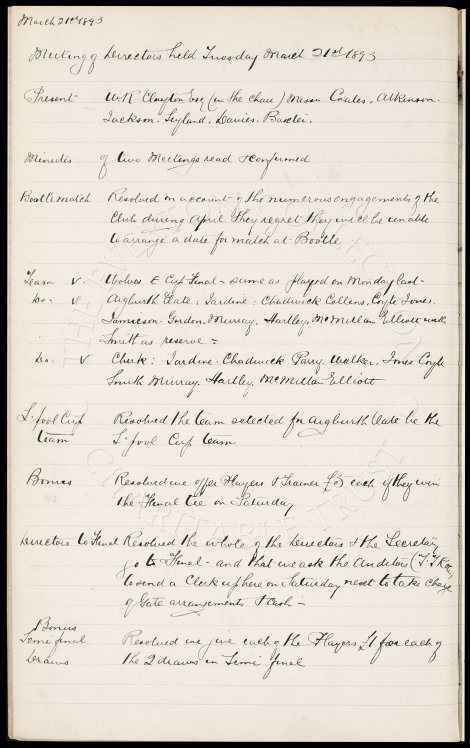 March 21st 1893
Meeting of Directors held Tuesday March 21st 1893
Present W.R. Clayton Esq (in the chair) Messrs Coates. Atkinson.
Jackson. Leyland. Davies. Baxter.
Minutes of two Meetings read & confirmed
Bootle match Resolved on account of the numerous engagements of the
Club during April they regret they will be unable
to arrange a date for match at Bootle
Team v Wolves E Cup Final - same as played on Monday last -
Do. v Aigburth Vale: Jardine. Chadwick Collins. Coyle Jones.
Jamieson. Gordon. Murray. Hartley. McMillan Elliott with
Smith as reserve -
do. v Chirk: Jardine. Chadwick Parry Walker. Jones Coyle
Smith Murray. Hartley. McMillan Elliott
L'pool Cup Resolved the team selected for Aigburth Vale be the
team L'pool Cup team
Bonus Resolved we offer Players & Trainer £3 each if they win
the Final tie on Saturday
Directors to Final Resolved the whole of the Directors & the Secretary
go to Final - and that we ask the Auditors
to send a Clerk up here on Saturday next to take charge
of Gate arrangements & Cash -
Bonus
Semi final Resolved we give each of the Players £1 for each of
Draws the 2 draws in Semi final
THE EVERTON COLLECTION
CHARITABLE TRUST